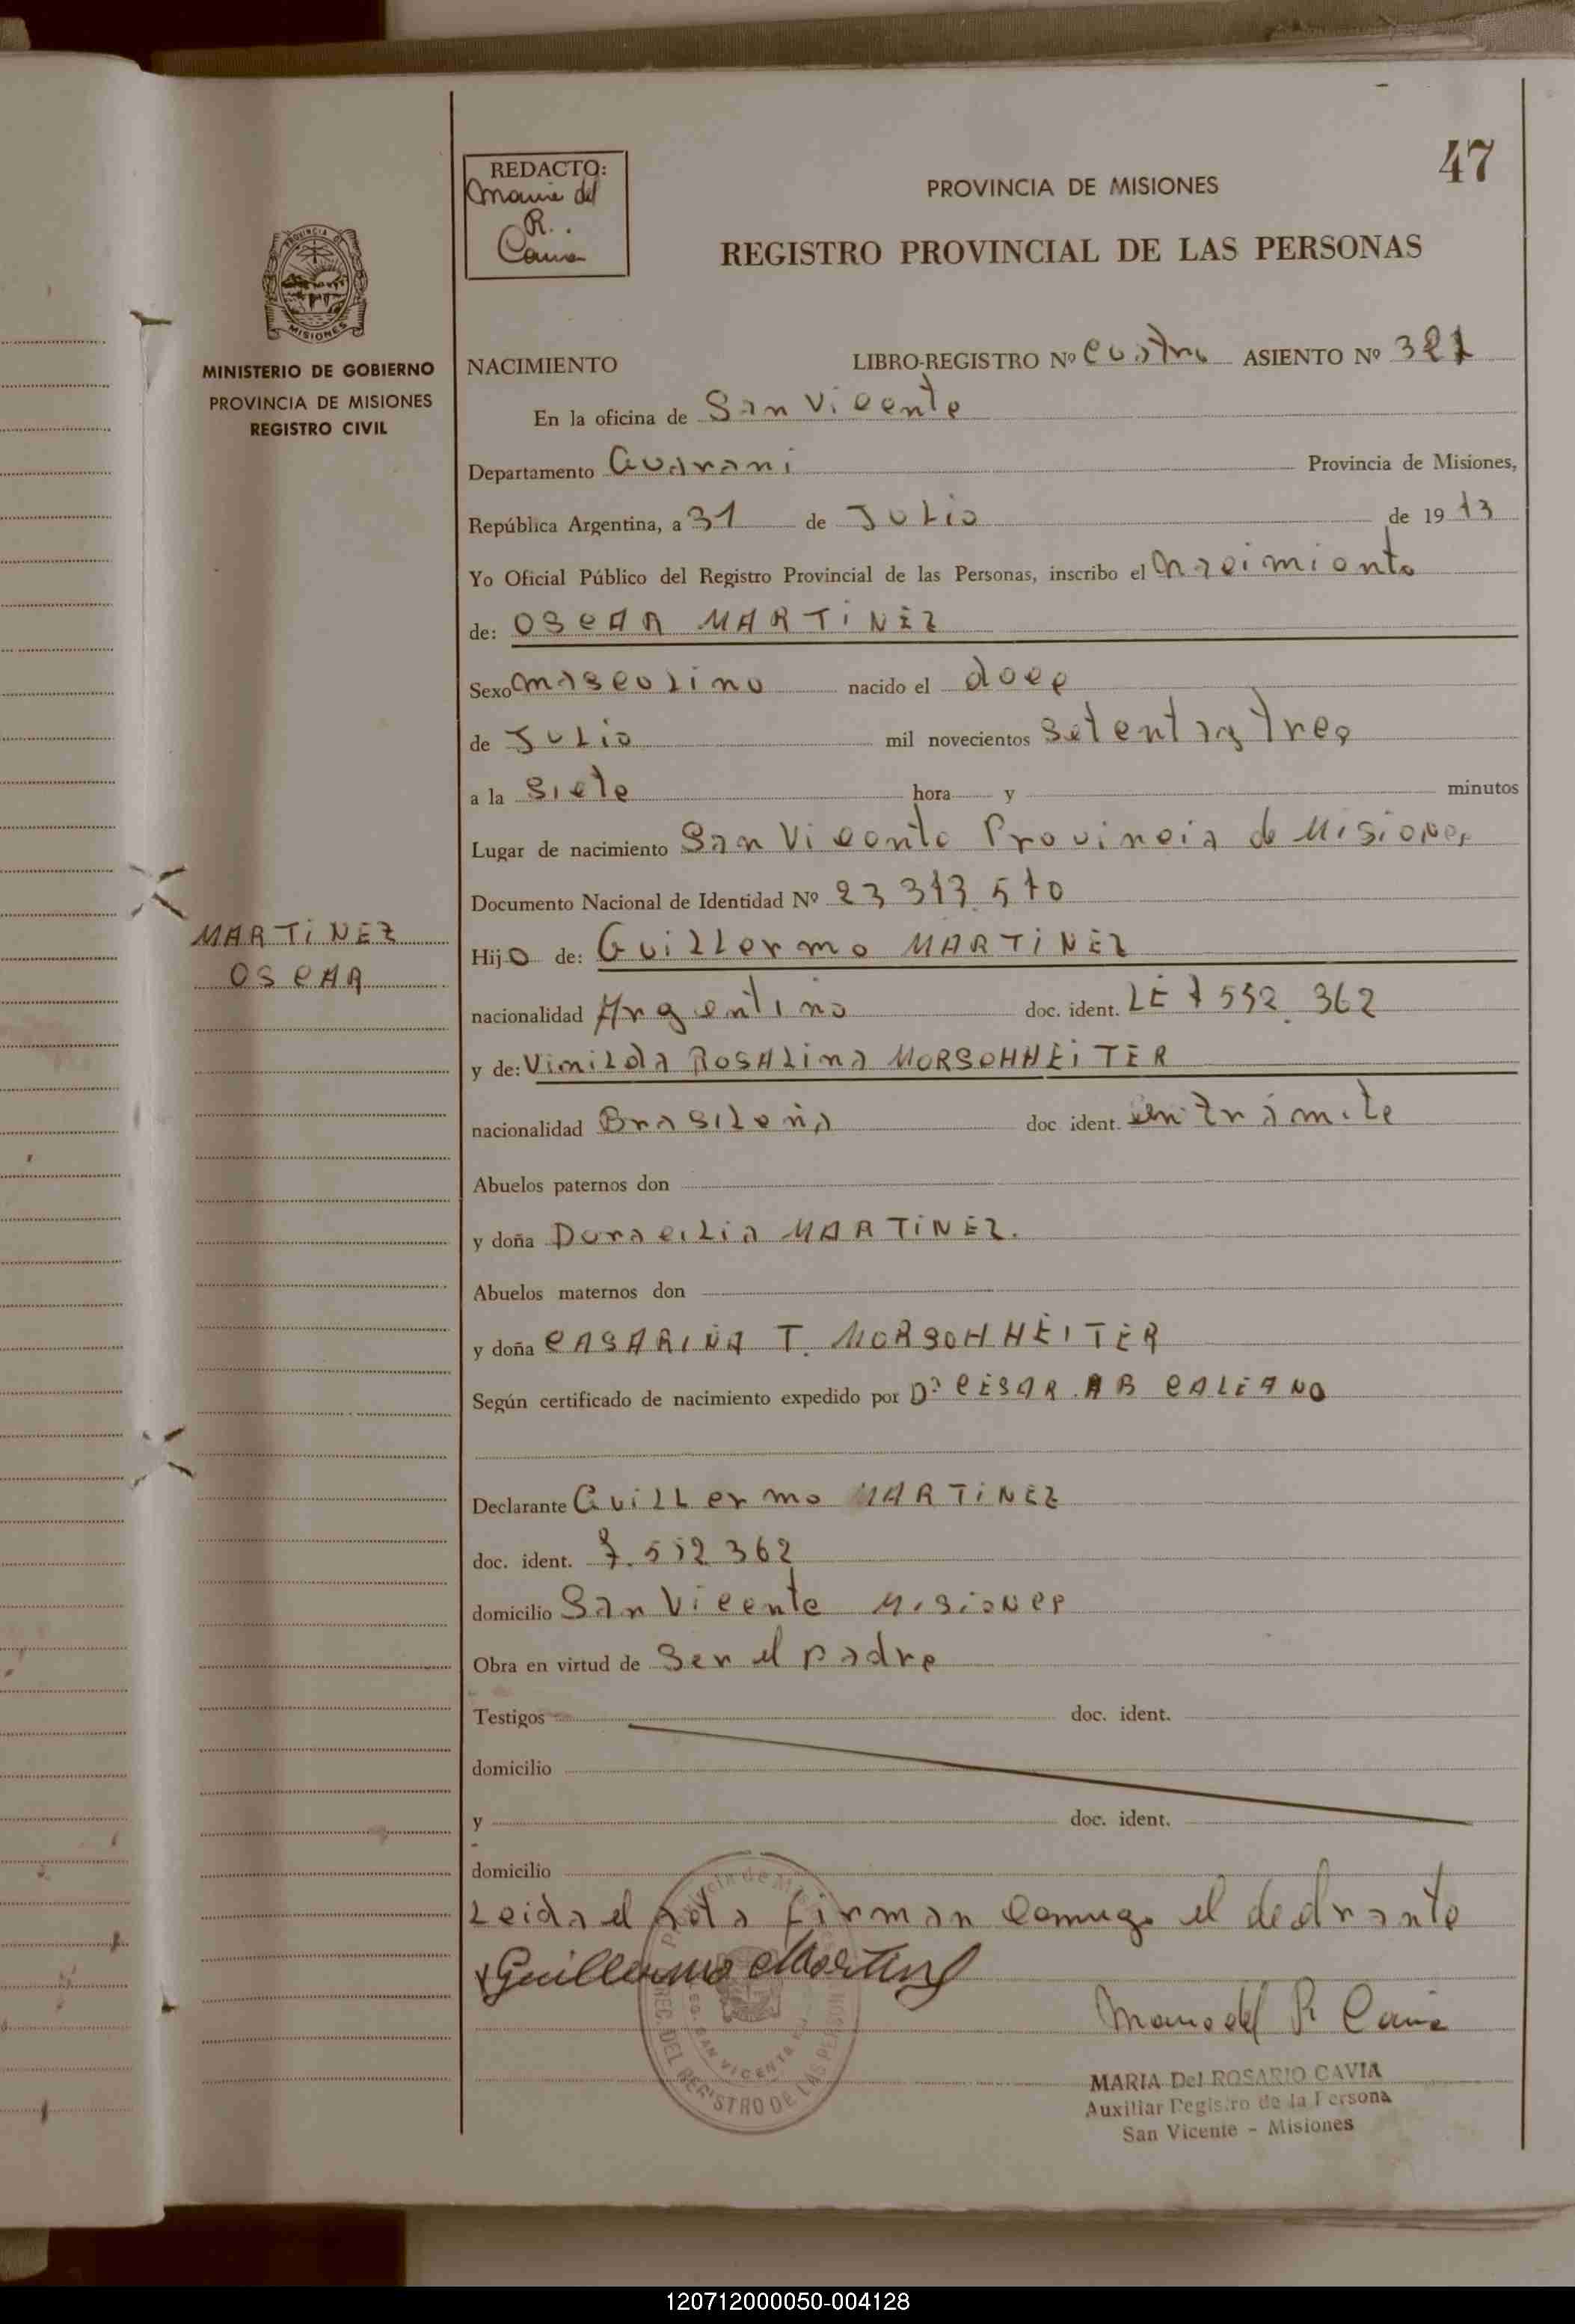 47
REDACTO:
Maria del
R.
Cavia
PROVINCIA DE MISIONES
REGISTRO PROVINCIAL DE LAS PERSONAS
PROVINCIA DE
MISIONES
MINISTERIO DE GOBIERNO
PROVINCIA DE MISIONES
REGISTRO CIVIL
NACIMIENTO LIBRO-REGISTRO Nº cuatro ASIENTO Nº 327
En la oficina de San Vicente
Departamento Guarani Provincia de Misiones,
República Argentina, a 31 de Julio de 19 73
Yo Oficial Público del Registro Provincial de las Personas, inscribo el nacimiento
de: OSCAR MARTINEZ
Sexo masculino nacido el doce
de Julio mil novecientos setenta y tres
a la siete hora y minutos
Lugar de nacimiento San Vicente Provincia de Misiones
Documento Nacional de Identidad Nº 23 313 510
MARTINEZ
OSCAR
Hijo de: Guillermo MARTINEZ
nacionalidad Argentino doc. ident. LE 7 532 362
y de: Vimilda ROSALina MORSOHHEITER
nacionalidad Brasileña doc ident. en trámite
Abuelos paternos don
y doña Doracilia MARTINEZ.
Abuelos maternos don
y doña CASARINA T. MORSOHHEITER
Según certificado de nacimiento expedido por Dr CESAR AB GALEANO
Declarante Guillermo MARTINEZ
doc. ident. 7.532 362
domicilio San Vicente Misiones
Obra en virtud de ser el padre
Testigos doc. ident.
domicilio
y doc. ident.
domicilio
Leida el acta firman conmigo el declarante
Guillermo Martinez
Maria del R Cavia
MARIA Del ROSARIO CAVIA
Auxiliar Registro de la Persona
San Vicente - Misiones
REGISTRO DE LAS PERSON
SAN VICENTE
120712000050-004128